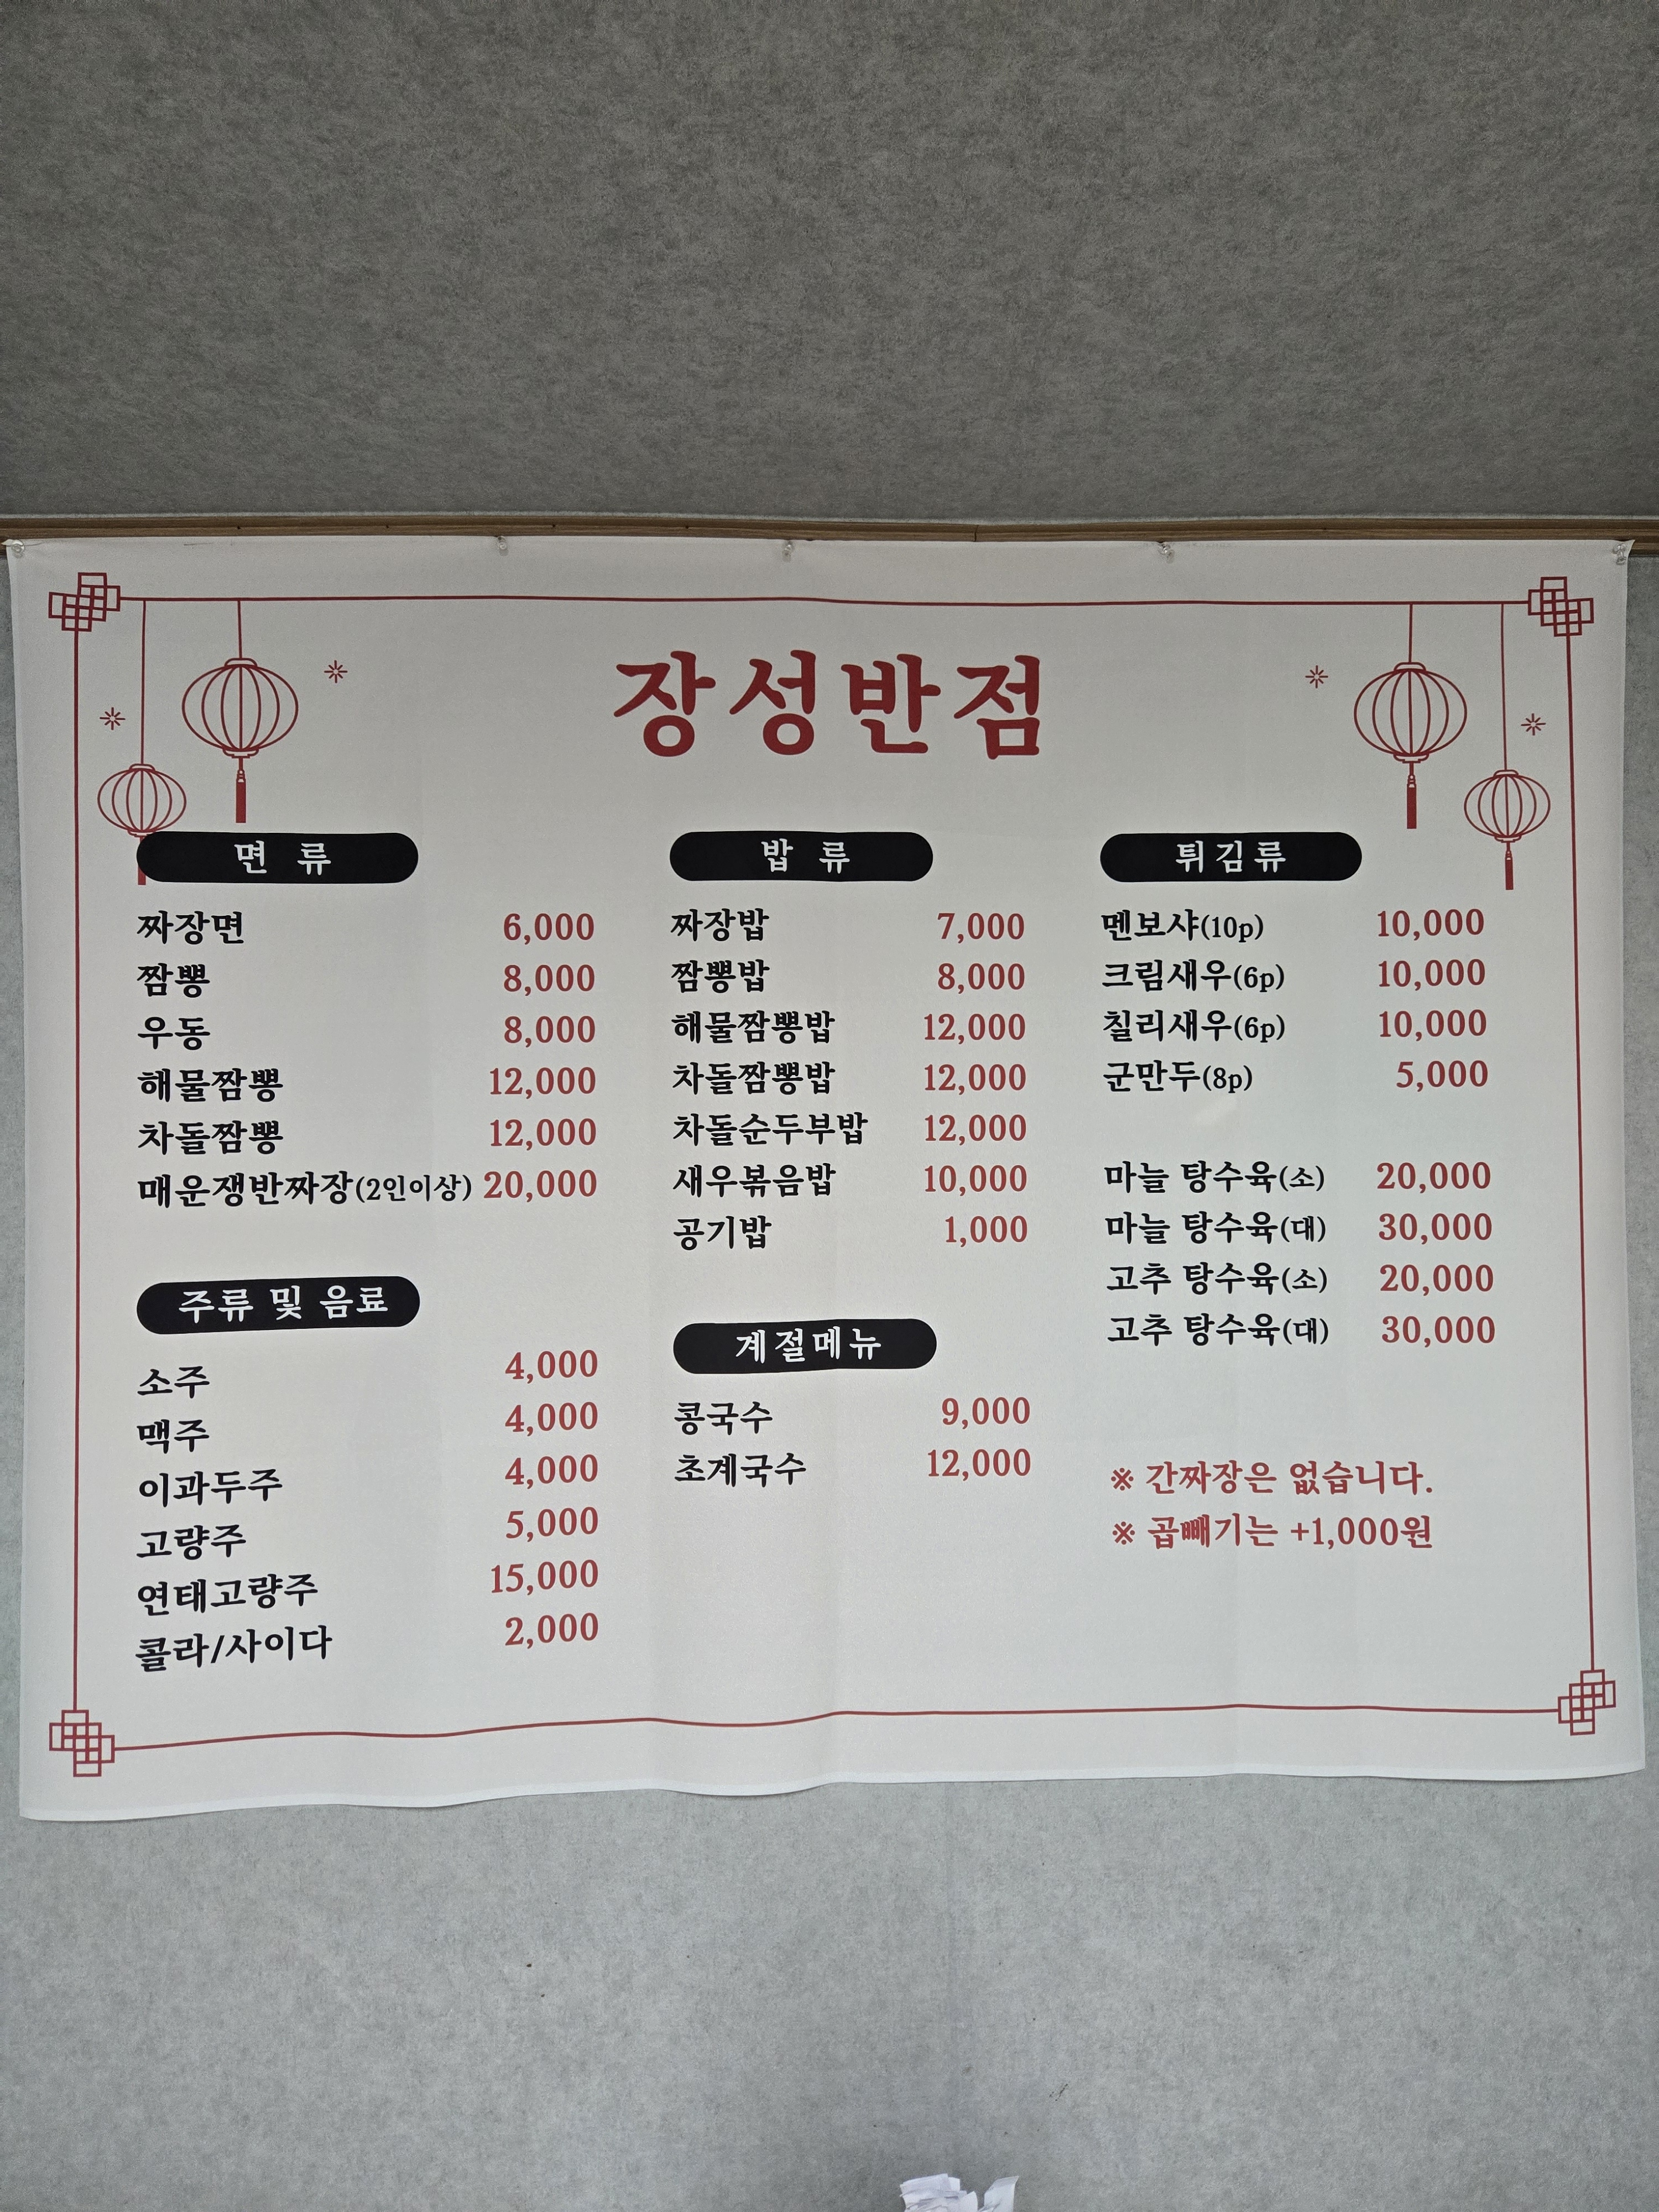 장성반점
면 류
짜장면 6,000
짬뽕 8,000
우동 8,000
해물짬뽕 12,000
차돌짬뽕 12,000
매운쟁반짜장(2인이상) 20,000
주류 및 음료
소주 4,000
맥주 4,000
이과두주 4,000
고량주 5,000
연태고량주 15,000
콜라/사이다 2,000
밥 류
짜장밥 7,000
짬뽕밥 8,000
해물짬뽕밥 12,000
차돌짬뽕밥 12,000
차돌순두부밥 12,000
새우볶음밥 10,000
공기밥 1,000
계절메뉴
콩국수 9,000
초계국수 12,000
튀김류
멘보샤(10p) 10,000
크림새우(6p) 10,000
칠리새우(6p) 10,000
군만두(8p) 5,000
마늘 탕수육(소) 20,000
마늘 탕수육(대) 30,000
고추 탕수육(소) 20,000
고추 탕수육(대) 30,000
※ 간짜장은 없습니다.
※ 곱빼기는 +1,000원